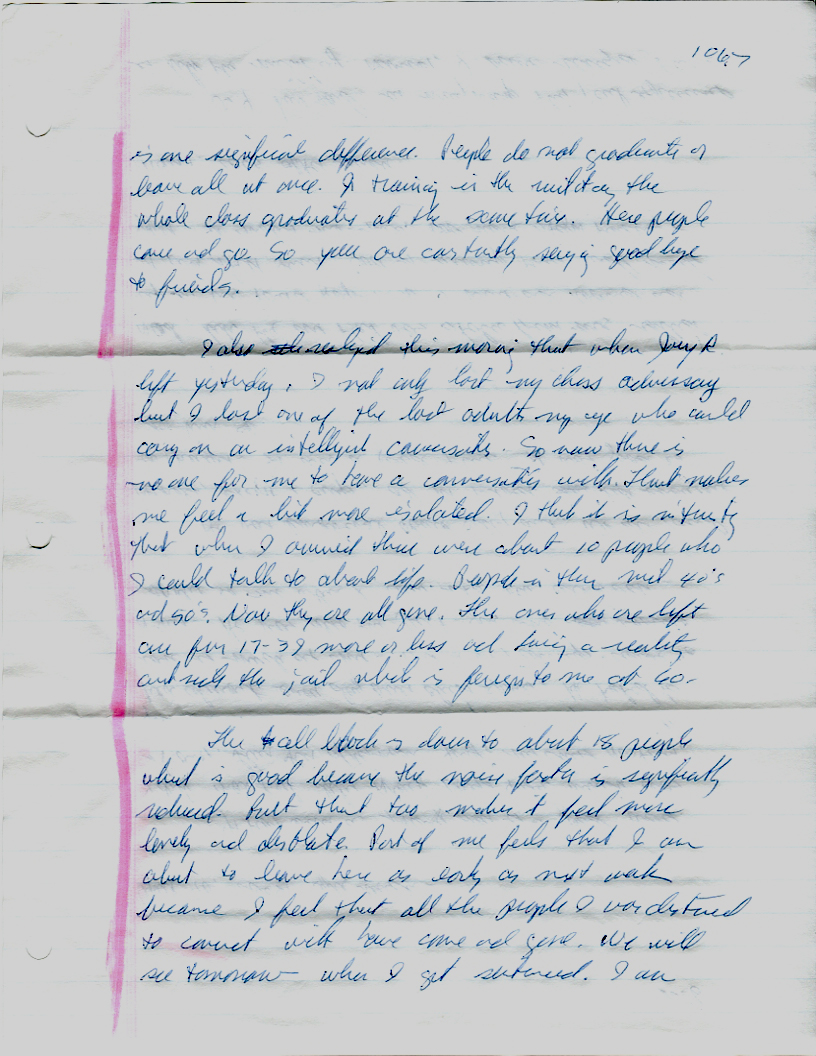 1067
is one significant difference. People do not graduate or
leave all at once. In training in the military the
whole class graduates at the same time. Here people
come and go. So you are constantly saying goodbye
to friends.
I also realized this morning that when Joey R
left yesterday, I not only lost my chess adversary
but I lost one of the last adults my age who could
carry on an intelligent conversation. So now there is
no one for me to have a conversation with. That makes
me feel a bit more isolated. I think it is
that when I arrived there were about 10 people who
I could talk to about life. People in their mid 40's
and 50's. Now they are all gone. The ones who are left
are from 17-39 more or less and living a reality
outside the jail which is foreign to me at 60.
The cell block is down to about 18 people
which is good because the noise factor is significantly
reduced. But that too makes it feel more
lonely and desolate. Part of me feels that I am
about to leave here as early as next week
because I feel that all the people I was destined
to connect with have come and gone. We will
see tomorrow when I get sentenced. I am